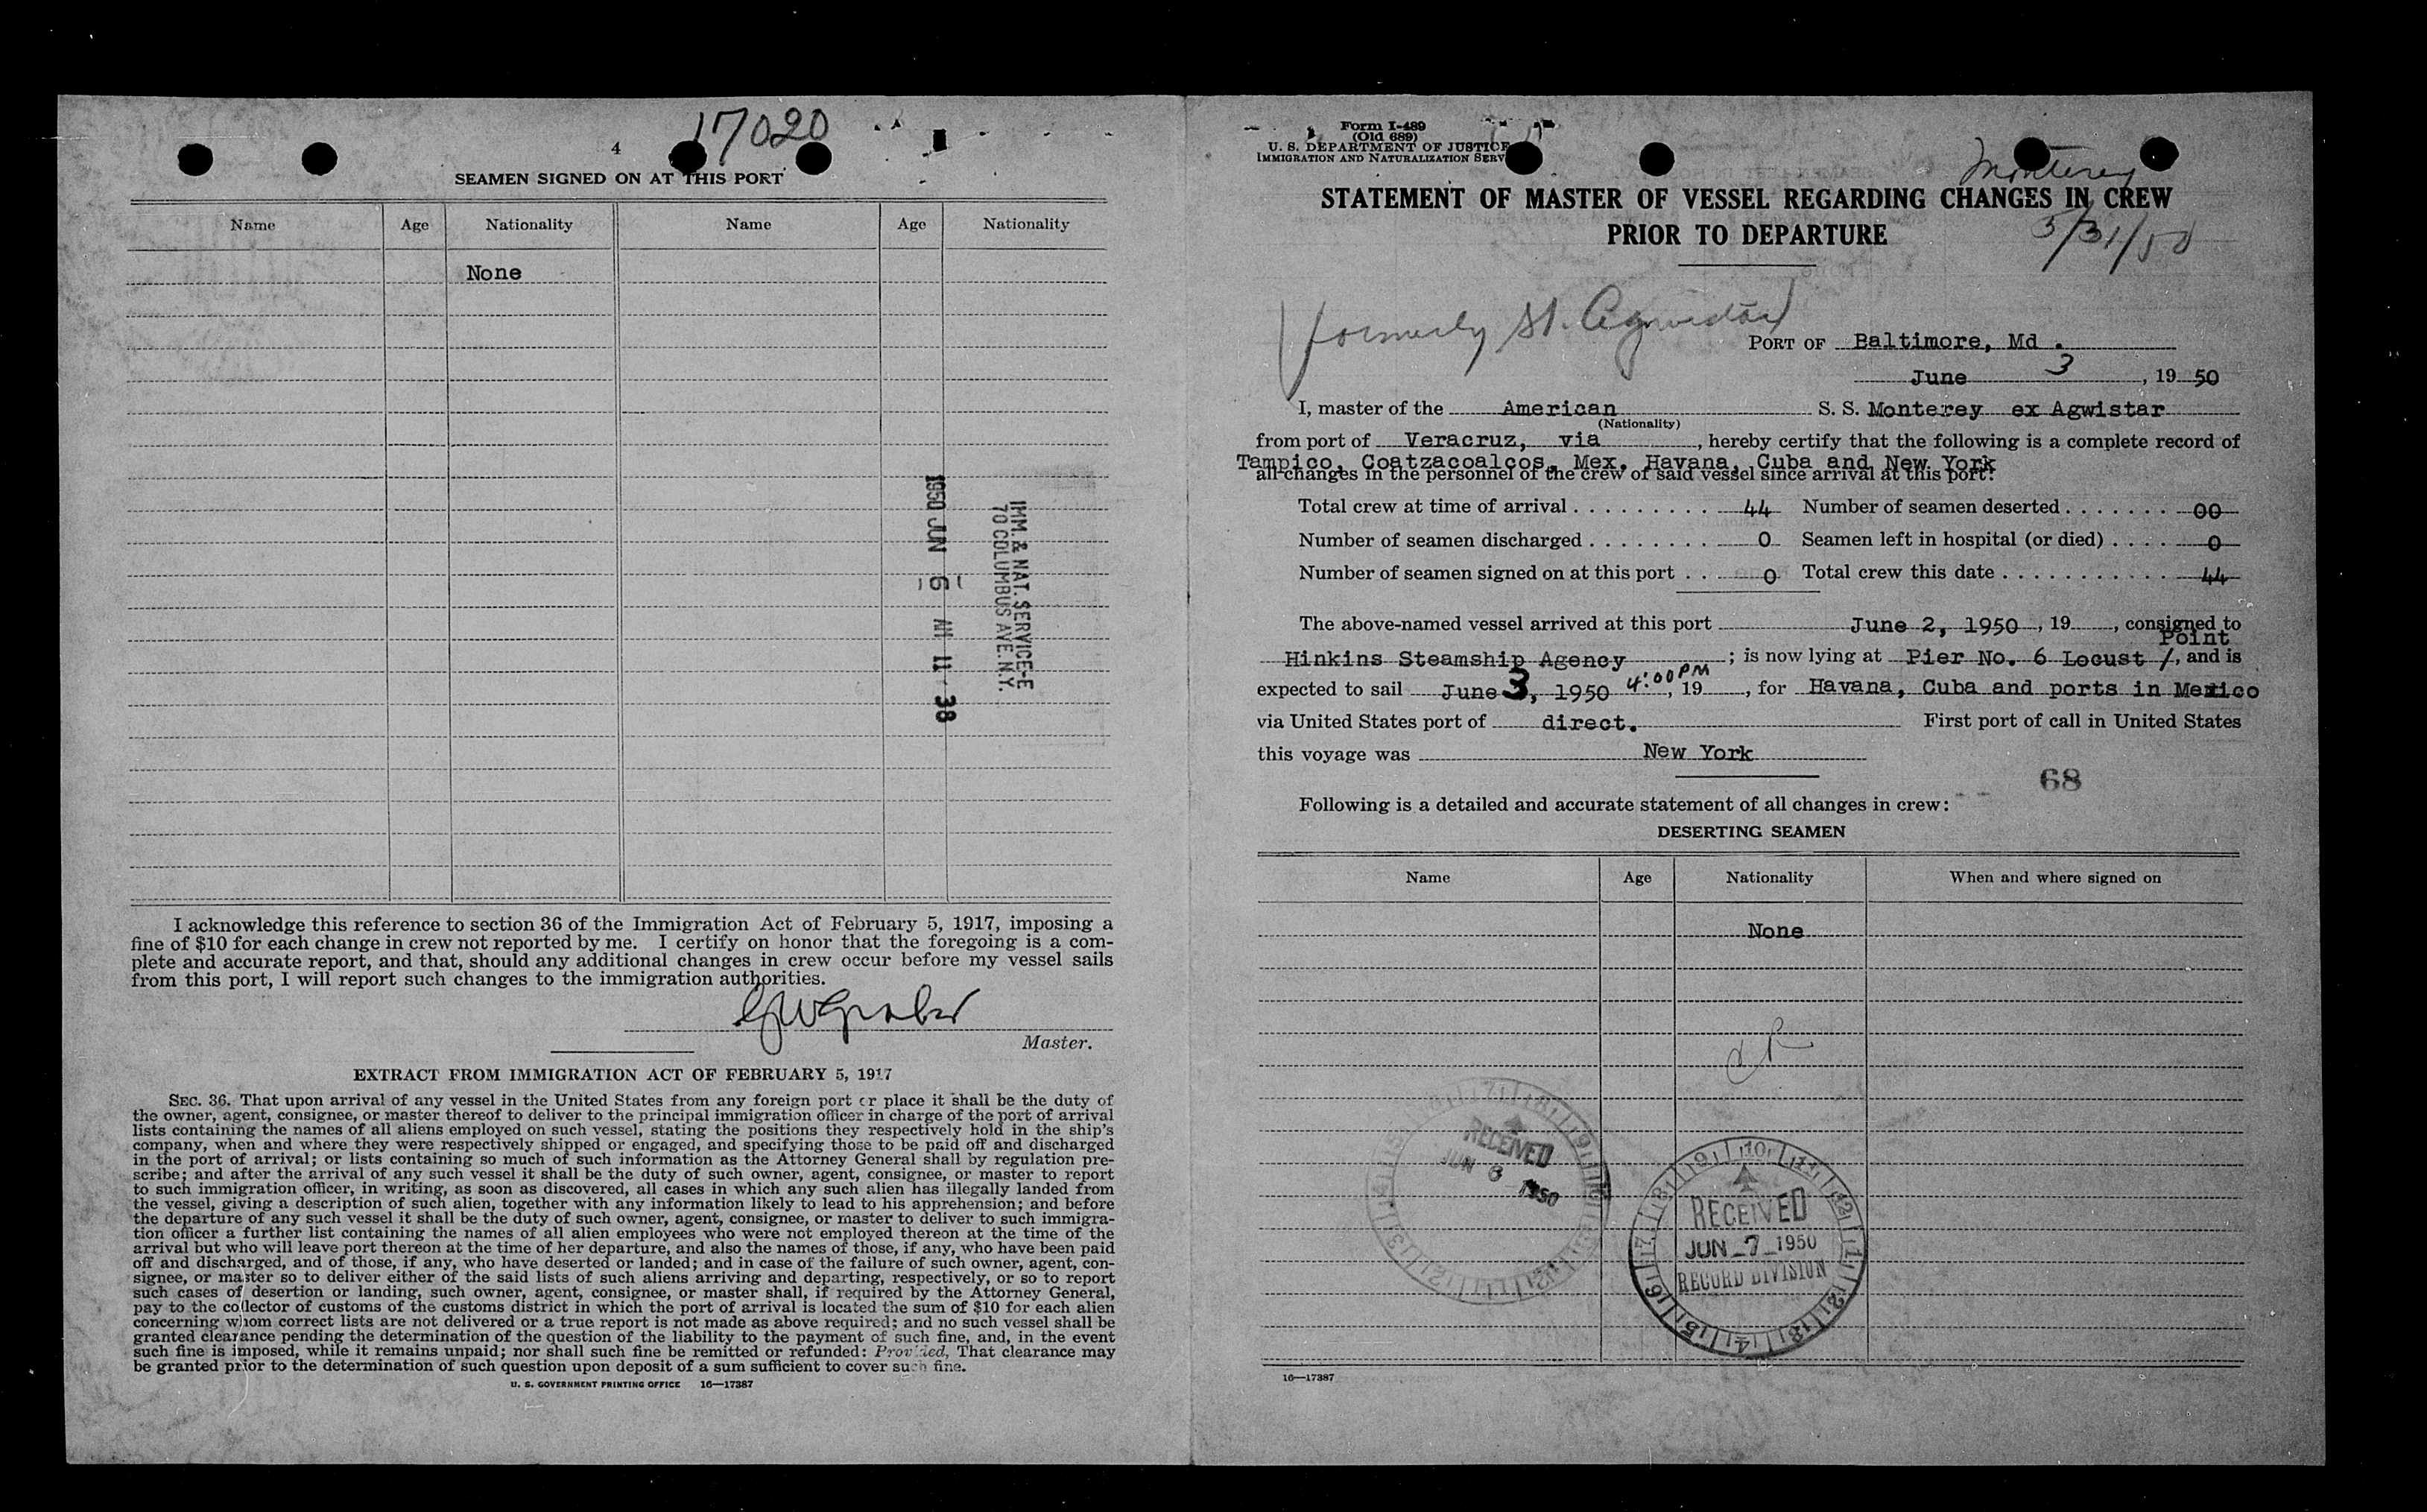 17020
4
SEAMEN SIGNED ON AT THIS PORT
Name Age Nationality Name Age Nationality
None
IMM. & NAT. SERVICE-E
70 COLUMBUS AVE. N.Y.
1950 JUN -6 AM 11 38
I acknowledge this reference to section 36 of the Immigration Act of February 5, 1917, imposing a
fine of $10 for each change in crew not reported by me. I certify on honor that the foregoing is a com-
plete and accurate report, and that, should any additional changes in crew occur before my vessel sails
from this port, I will report such changes to the immigration authorities.
Master.
EXTRACT FROM IMMIGRATION ACT OF FEBRUARY 5, 1917
SEC. 36. That upon arrival of any vessel in the United States from any foreign port or place it shall be the duty of
the owner, agent, consignee, or master thereof to deliver to the principal immigration officer in charge of the port of arrival
lists containing the names of all aliens employed on such vessel, stating the positions they respectively hold in the ship's
company, when and where they were respectively shipped or engaged, and specifying those to be paid off and discharged
in the port of arrival; or lists containing so much of such information as the Attorney General shall by regulation pre-
scribe; and after the arrival of any such vessel it shall be the duty of such owner, agent, consignee, or master to report
to such immigration officer, in writing, as soon as discovered, all cases in which any such alien has illegally landed from
the vessel, giving a description of such alien, together with any information likely to lead to his apprehension; and before
the departure of any such vessel it shall be the duty of such owner, agent, consignee, or master to deliver to such immigra-
tion officer a further list containing the names of all alien employees who were not employed thereon at the time of the
arrival but who will leave port thereon at the time of her departure, and also the names of those, if any, who have been paid
off and discharged, and of those, if any, who have deserted or landed; and in case of the failure of such owner, agent, con-
signee, or master so to deliver either of the said lists of such aliens arriving and departing, respectively, or so to report
such cases of desertion or landing, such owner, agent, consignee, or master shall, if required by the Attorney General,
pay to the collector of customs of the customs district in which the port of arrival is located the sum of $10 for each alien
concerning whom correct lists are not delivered or a true report is not made as above required; and no such vessel shall be
granted clearance pending the determination of the question of the liability to the payment of such fine, and, in the event
such fine is imposed, while it remains unpaid; nor shall such fine be remitted or refunded: Provided, That clearance may
be granted prior to the determination of such question upon deposit of a sum sufficient to cover such fine.
U. S. GOVERNMENT PRINTING OFFICE 16—17387
Form I-489
(Old 689)
U. S. DEPARTMENT OF JUSTICE
IMMIGRATION AND NATURALIZATION SERV
Monterey
STATEMENT OF MASTER OF VESSEL REGARDING CHANGES IN CREW
PRIOR TO DEPARTURE
5/31/50
formerly St. Agwistar
PORT OF Baltimore, Md.
June 3, 1950
I, master of the American S. S. Monterey ex Agwistar
(Nationality)
from port of Veracruz, via, hereby certify that the following is a complete record of
Tampico, Coatzacoalcos, Mex. Havana, Cuba and New York
all changes in the personnel of the crew of said vessel since arrival at this port:
Total crew at time of arrival . . . . . . . . . 44 Number of seamen deserted . . . . . . . 00
Number of seamen discharged . . . . . . . . 0 Seamen left in hospital (or died) . . . . 0
Number of seamen signed on at this port . . . 0 Total crew this date . . . . . . . . . . . 44
The above-named vessel arrived at this port June 2, 1950, 19, consigned to
Point
Hinkins Steamship Agency; is now lying at Pier No. 6 Locust /, and is
expected to sail June 3, 1950 4:00 PM, 19, for Havana, Cuba and ports in Mexico
via United States port of direct. First port of call in United States
this voyage was New York
68
Following is a detailed and accurate statement of all changes in crew:
DESERTING SEAMEN
Name Age Nationality When and where signed on
None
RECEIVED
JUN 8 1950
RECEIVED
JUN 7 1950
RECORD DIVISION
16—17387